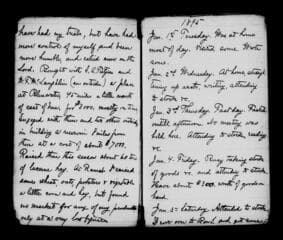 have had my trials, but have had
more control of myself and been
more humble, and relied more on the
Lord. Bought with
a place
at Ellsworth, 45 miles a little west
of east of him, for $3000. mostly on time
engaged with them and two other
in building a reservoir
them at a cost of about $7000.
Raised then this season about 60 tons
of lucerne hay. At Ranch I raised
some wheat, oats, potatoes & vegetables
a little corn and hay, but found
no market for any of my products
only at a very low figure
1895
Jan. 1st Tuesday. Was at home
most of day. Visited some. Wrote
some.
Jan. 2nd Wednesday. At home
writing, attending
to stock &c.
Jan. 3rd Thursday. Fast day. Fasted
until afternoon. No meeting was
held here. Attended to stock, reading
&c.
Jan. 4. Friday. Busy taking stock
of goods &c. and attending to stock
Have about $500. worth of goods on
hand.
Jan. 5. Saturday. Attended to stock
& went over to Ranch and got some